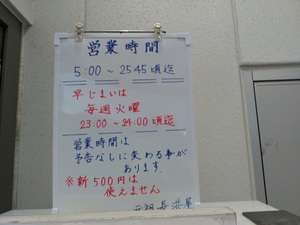 営業時間
5:00 ~ 25:45頃迄
早じまいは
毎週火曜
23:00 ~ 24:00頃迄
営業時間は
予告なしに変わる事が
あります。
※新500円は
使えません
元祖長浜屋